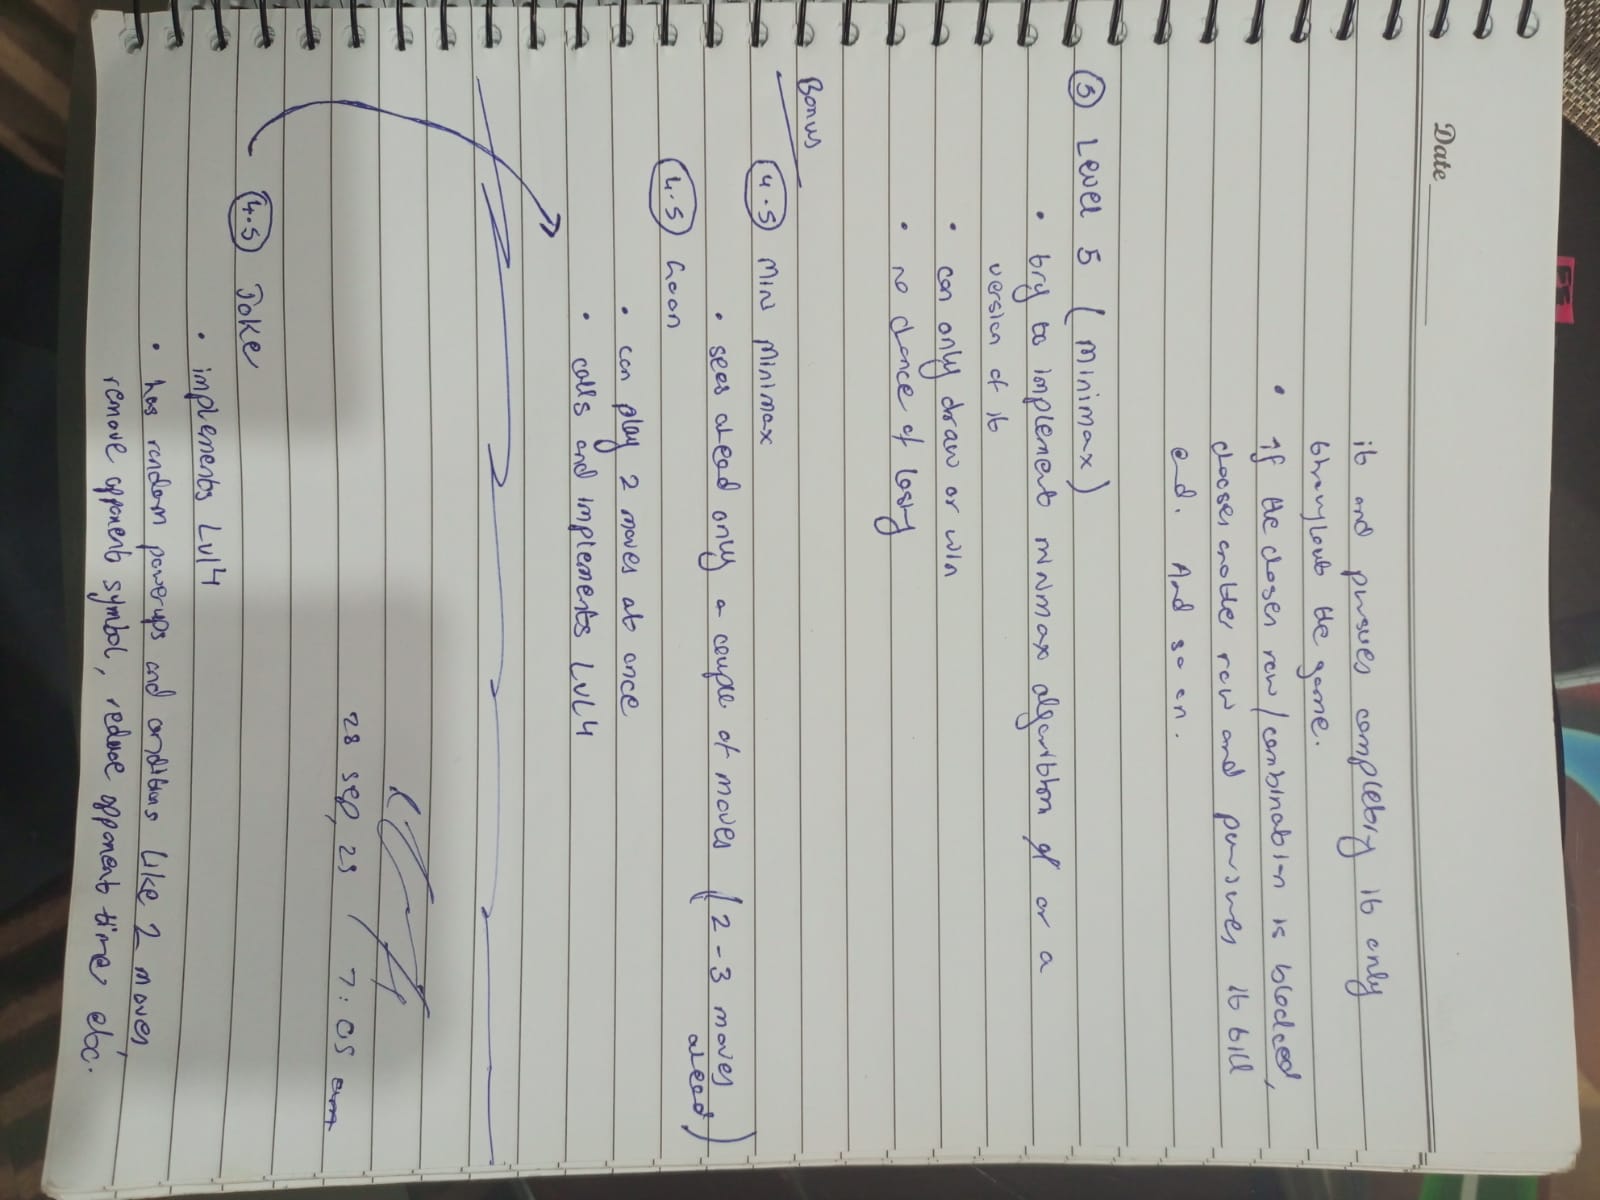 Date
it and pursues completely it only
throughout the game.
• if the chosen row/combination is blocked,
chooses another row and pursues it till
end. And so on.
⑤ Level 5 (Minimax)
• try to implement minmax algorithm or a
version of it
• can only draw or win
• no chance of losing
Bonus
4.5 Min Minimax
• sees ahead only a couple of moves (2-3 moves
ahead)
4.5
• can play 2 moves at once
• calls and implements Lvl 4
28 sep, 25 / 7:05 am
4.5 Joke
• implements Lvl 4
• has random powerups and conditions like 2 moves,
remove opponent symbol, reduce opponent time, etc.